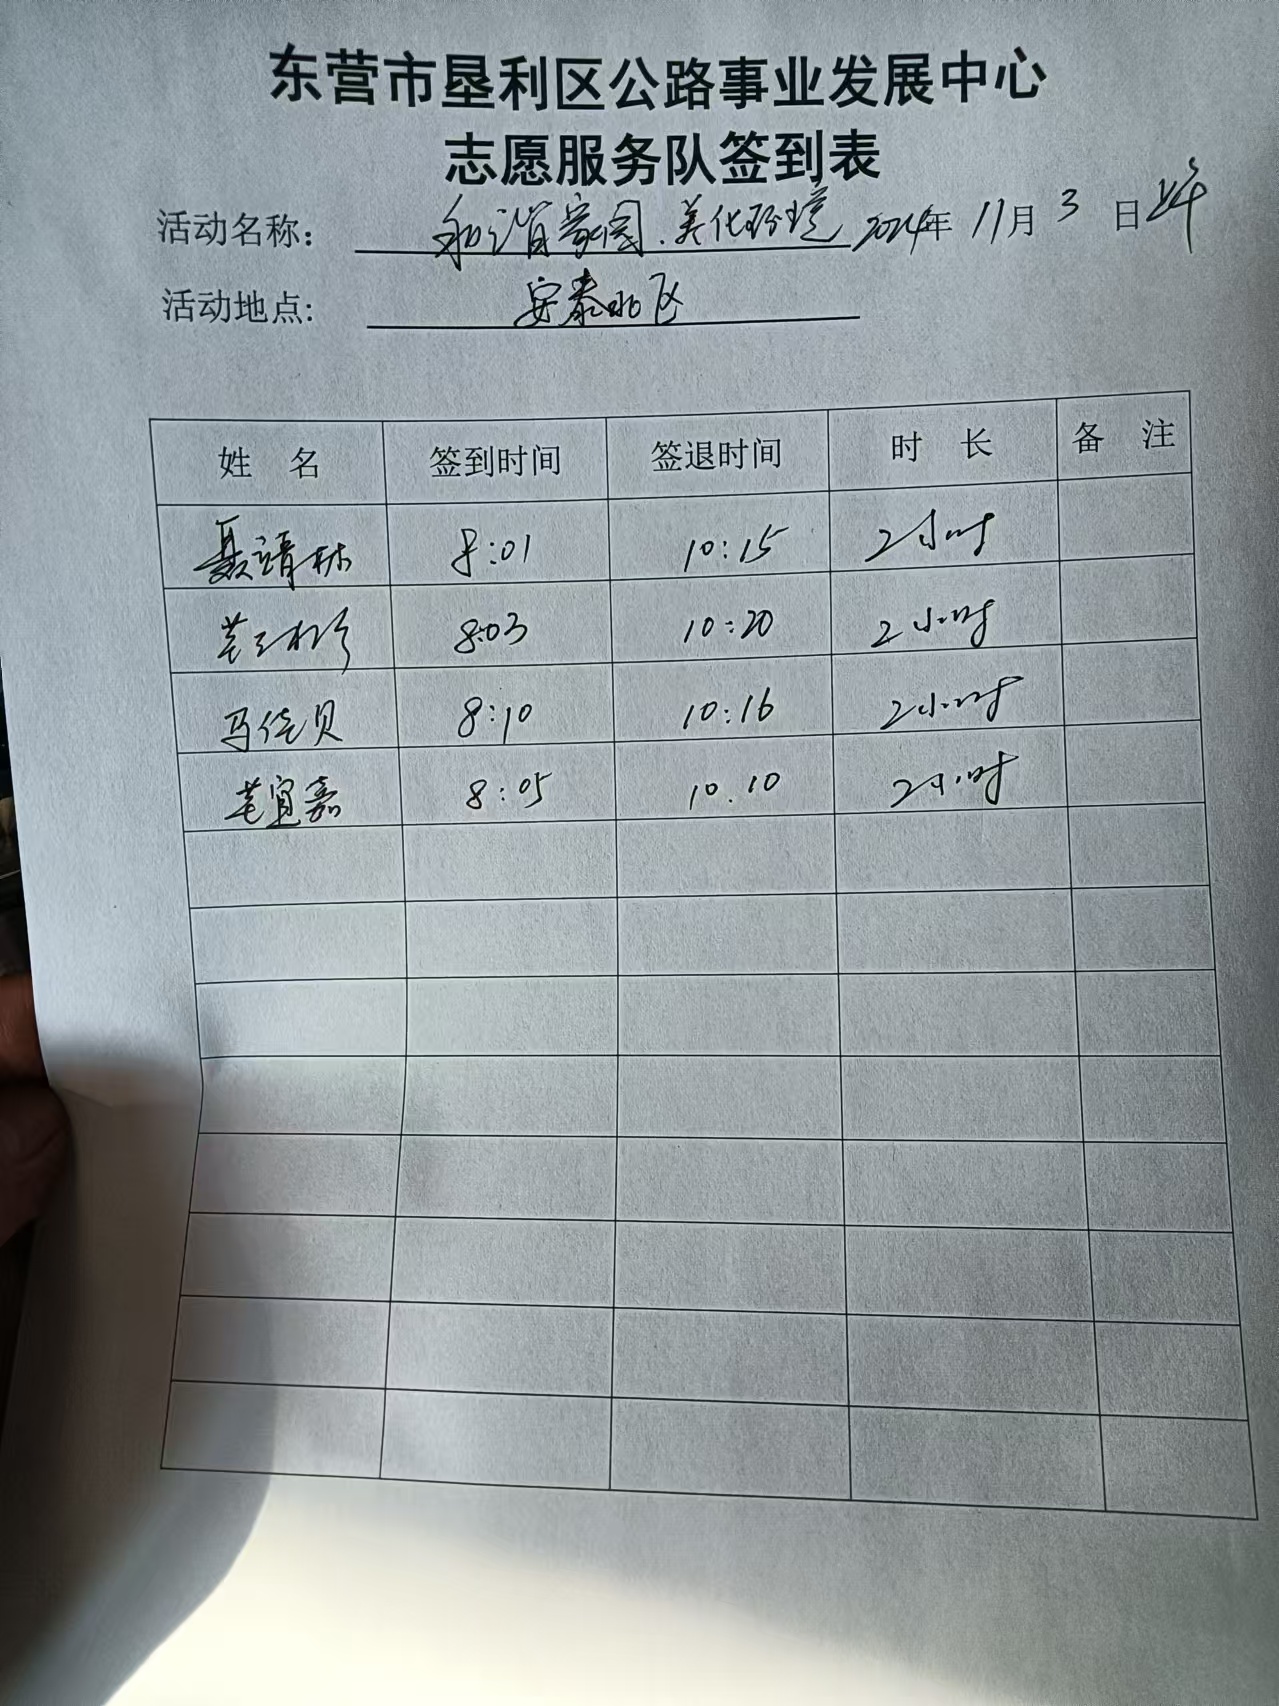 东营市垦利区公路事业发展中心
志愿服务队签到表
活动名称： 和谐家园.美化环境 2024年 11月 3 日
活动地点: 安泰北区
姓 名 签到时间 签退时间 时 长 备 注
聂靖林 8:01 10:15 2小时
8:03 10:20 2小时
马佳贝 8:10 10:16 2小时
宜嘉 8:05 10.10 2小时